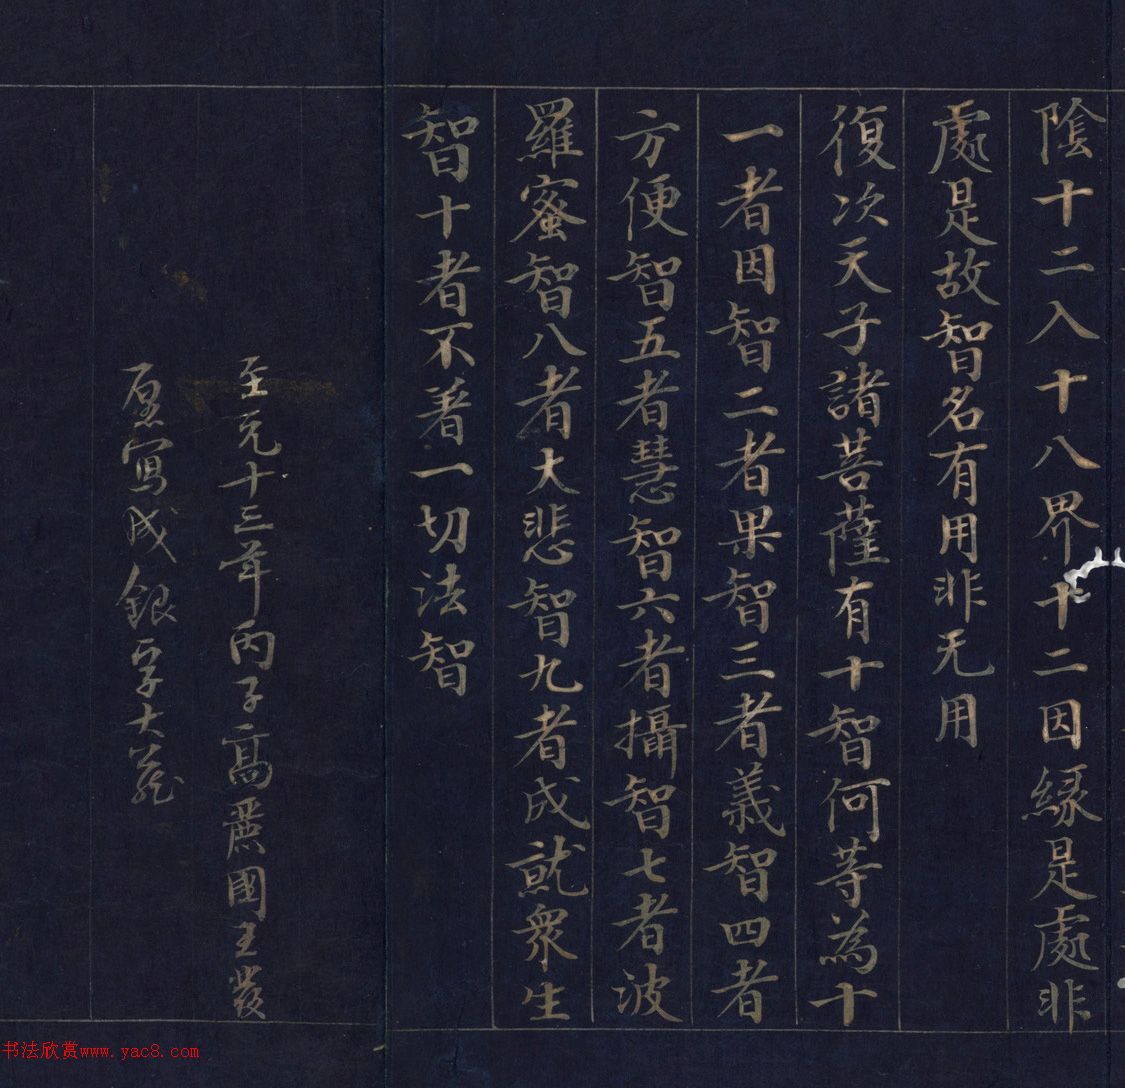 陰十二入十八界十二因縁是處非
處是故智名有用非无用
復次天子諸菩薩有十智何等為十
一者因智二者果智三者義智四者
方便智五者慧智六者攝智七者波
羅蜜智八者大悲智九者成就衆生
智十者不著一切法智
至元十三年丙子高麗國王發
愿寫成銀字大藏
书法欣赏www.yac8.com